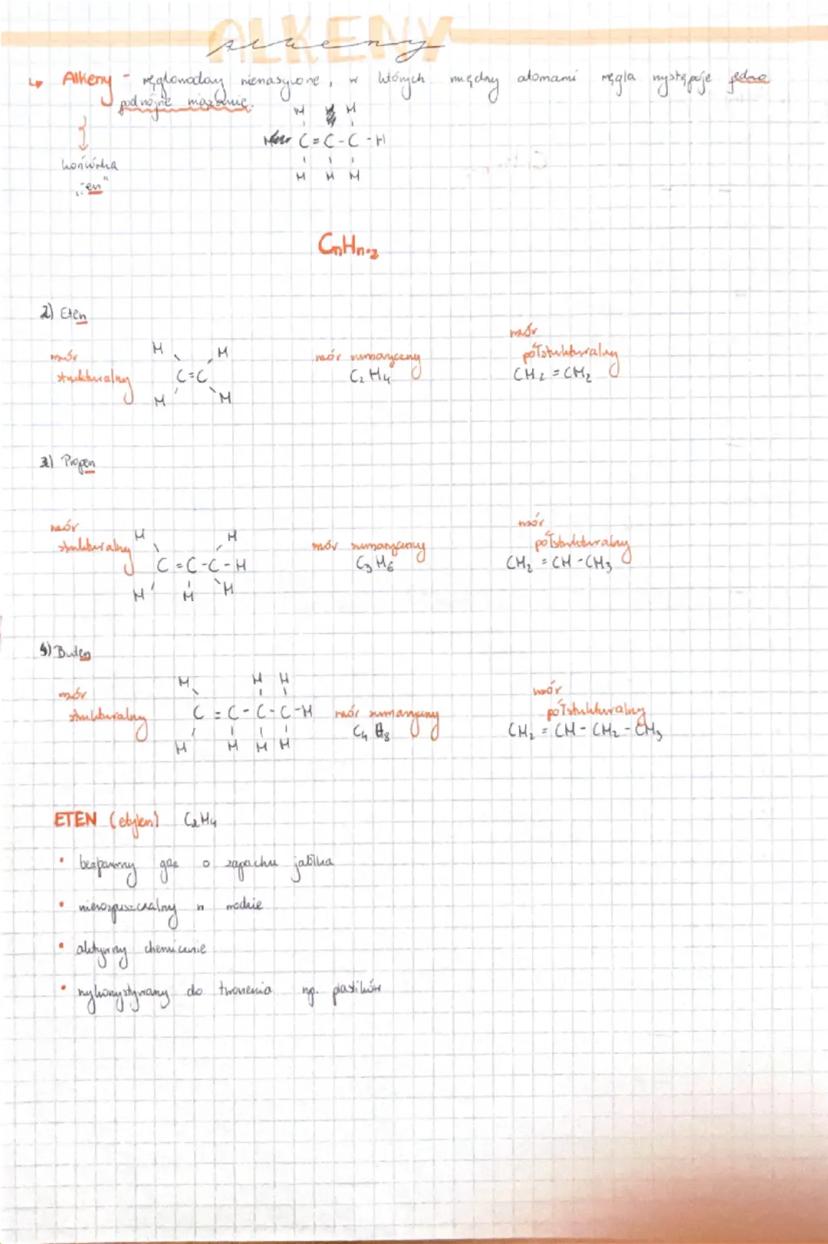 ALKENY
alkeny
↳ Alkeny - węglowodany nienasycone, w których między atomami węgla występuje jedno
podwójne wiązanie.
H H
C=C-C-H
H H H
końcówka
"-en"
CnHn·2
2) Eten
wzór strukturalny
H H
C=C
H H
wzór sumaryczny
C₂H₄
wzór półstrukturalny
CH₂=CH₂
3) Propen
wzór strukturalny
H H
C=C-C-H
H H H
wzór sumaryczny
C₃H₆
wzór półstrukturalny
CH₂=CH-CH₃
4) Buten
wzór strukturalny
H H H
C=C-C-C-H
H H H H
wzór sumaryczny
C₄H₈
wzór półstrukturalny
CH₂=CH-CH₂-CH₃
ETEN (etylen) C₂H₄
• bezbarwny gaz o zapachu jabłka
• nierozpuszczalny w wodzie
• aktywny chemicznie
• wykorzystywany do tworzenia np. plastików